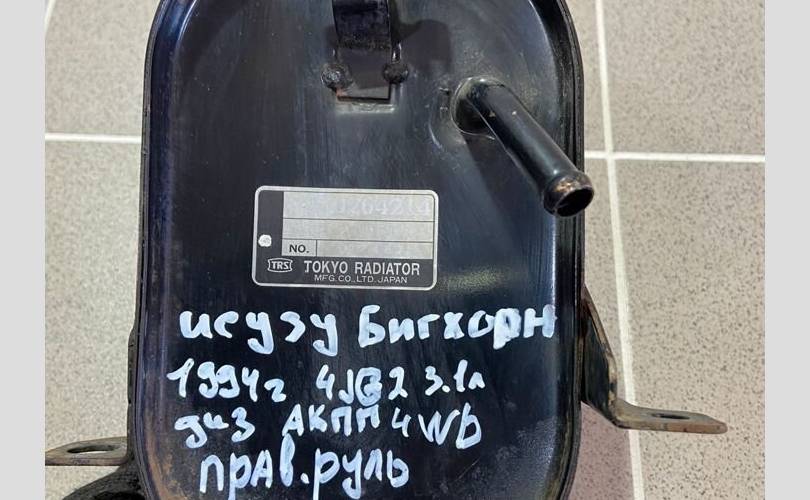 NO.
TRS TOKYO RADIATOR
MFG.CO.,LTD.JAPAN
исузу Бигхорн
1994г 4JG2 3.1л
диз АКПП 4WD
прав.руль